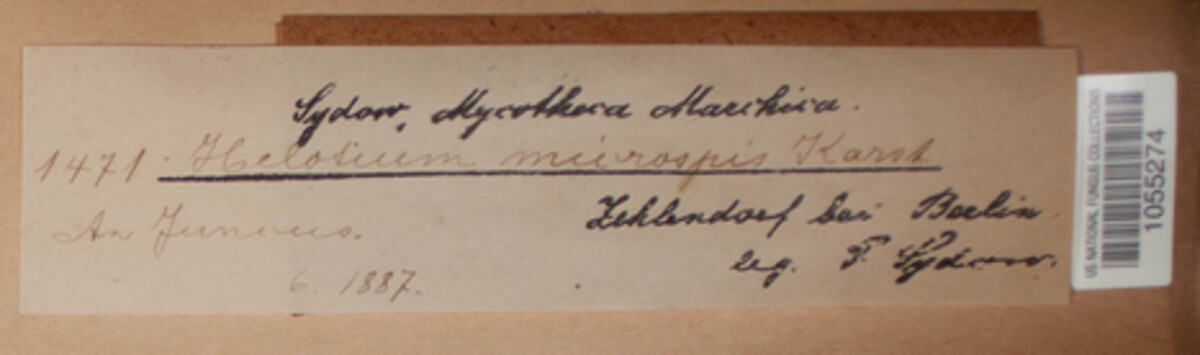 Sydow, Mycotheca Marchica.
1471. Helotium microspis Karst
An Juncus.
Zehlendorf bei Berlin.
6. 1887.
leg. P. Sydow.
US NATIONAL FUNGUS COLLECTIONS
1055274